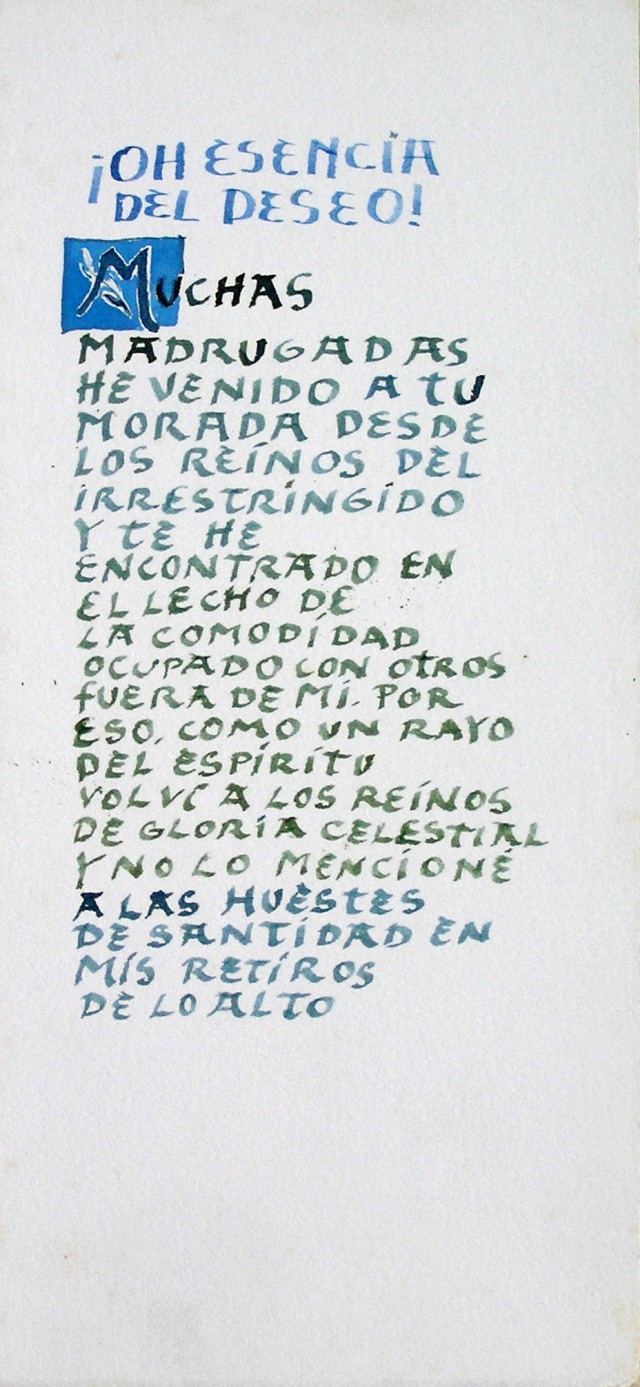 ¡OH ESENCIA
DEL DESEO!
MUCHAS
MADRUGADAS
HE VENIDO A TU
MORADA DESDE
LOS REINOS DEL
IRRESTRINGIDO
Y TE HE
ENCONTRADO EN
EL LECHO DE
LA COMODIDAD
OCUPADO CON OTROS
FUERA DE MÍ. POR
ESO, COMO UN RAYO
DEL ESPÍRITU
VOLVÍ A LOS REINOS
DE GLORIA CELESTIAL
Y NO LO MENCIONÉ
A LAS HUESTES
DE SANTIDAD EN
MIS RETIROS
DE LO ALTO